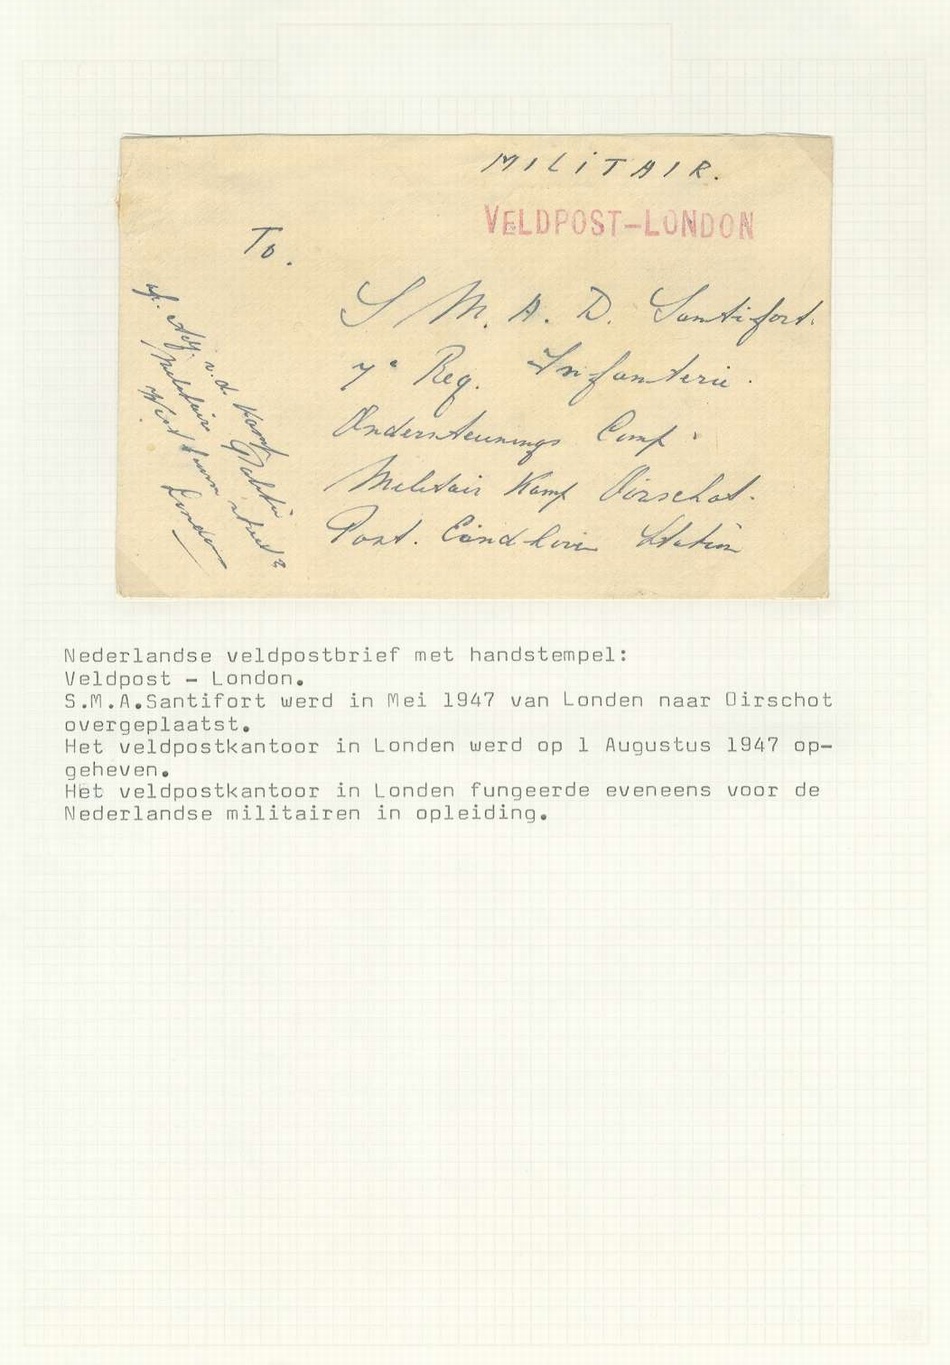 MILITAIR.
VELDPOST-LONDON
To.
S M. A. D. Santifort.
7e Reg. Infanterie.
Ondersteunings Comp.
Militair Kamp Oirschot.
Post. Eindhoven Station
af. Adj. v.d. Kamp
Militair
West
London
Nederlandse veldpostbrief met handstempel:
Veldpost - London.
S.M.A.Santifort werd in Mei 1947 van Londen naar Oirschot
overgeplaatst.
Het veldpostkantoor in Londen werd op 1 Augustus 1947 op-
geheven.
Het veldpostkantoor in Londen fungeerde eveneens voor de
Nederlandse militairen in opleiding.